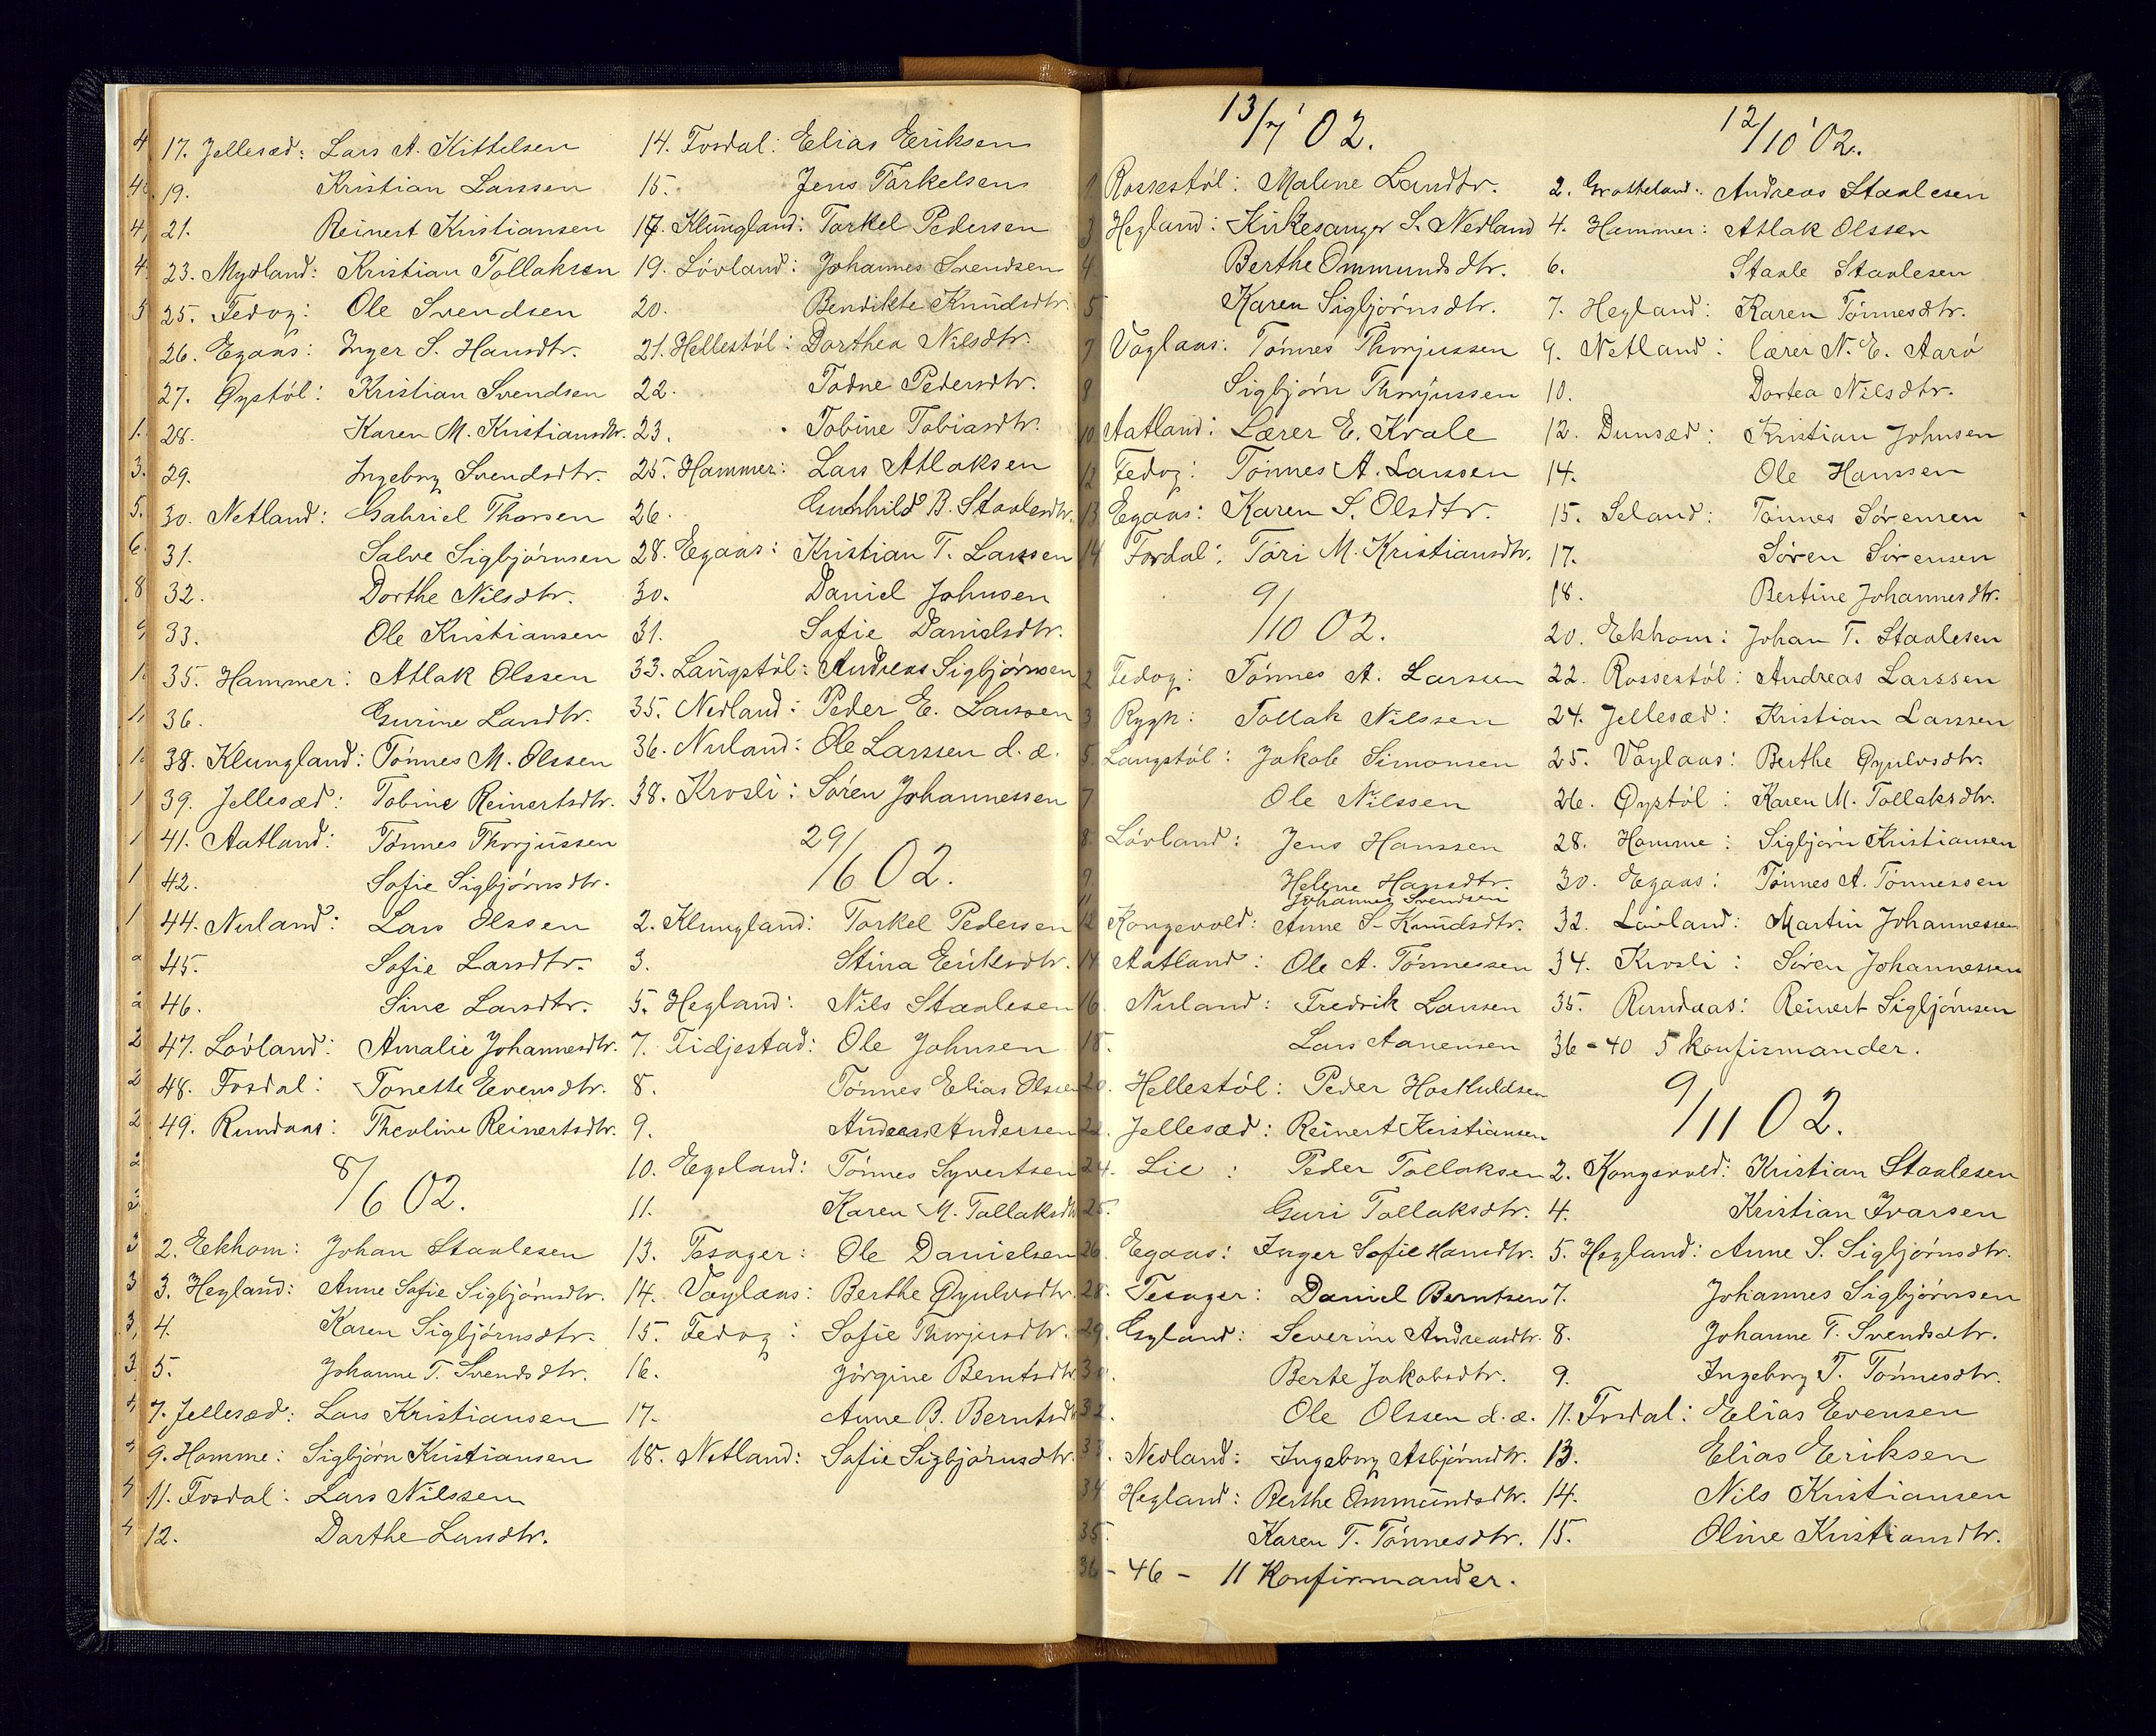 17. Jellesæd: Lars A. Kittelsen
19. Kristian Larssen
21. Reinert Kristiansen
23. Mydland: Kristian Tollaksen
25. Fedog: Ole Svendsen
26. Egaas: Inger S. Hansdtr.
27. Øystöl: Kristian Svendsen
28. Karen M. Kristiansdtr.
29. Ingeborg Svendsdtr.
30. Netland: Gabriel Thorsen
31. Salve Sigbjörnsen
32. Dorthe Nilsdtr.
33. Ole Kristiansen
35. Hammer: Atlak Olssen
36. Gurine Larsdtr.
38. Klungland: Tönnes M. Olssen
39. Jellesæd: Tobine Reinertsdtr.
41. Aatland: Tönnes Thorjussen
42. Sofie Sigbjörnsdtr.
44. Nuland: Lars Olssen
45. Sofie Larsdtr.
46. Sine Larsdtr.
47. Lövland: Amalie Johannesdtr.
48. Fosdal: Tonette Evensdtr.
49. Rundaas: Theoline Reinertsdtr.
8/6 02.
2. Eekhom: Johan Staalesen
3. Hegland: Anne Sofie Sigbjörnsdtr.
4. Karen Sigbjörnsdtr.
5. Johanne T. Svendsdtr.
7. Jellesæd: Lars Kristiansen
9. Homme: Sigbjörn Kristiansen
11. Fosdal: Lars Nilssen
12. Dorthe Larsdtr.
14. Fosdal: Elias Eriksen
15. Jens Torkelsen
17. Klungland: Torkel Pedersen
19. Lövland: Johannes Svendsen
20. Bendikte Knudsdtr.
21. Hellestöl: Dorthea Nilsdtr.
22. Todne Pedersdtr.
23. Tobine Tobiasdtr.
25. Hammer: Lars Atlaksen
26. Gunhild B. Staalesdtr.
28. Egaas: Kristian T. Larssen
30. Daniel Johnsen
31. Sofie Danielsdtr.
33. Langstöl: Andreas Sigbjörnsen
35. Nedland: Peder E. Larssen
36. Nuland: Ole Larssen d. æ.
38. Krosli: Sören Johannessen
29/6 02.
2. Klungland: Torkel Pedersen
3. Stina Eriksdtr.
5. Hegland: Nils Staalesen
7. Tidjestad: Ole Johnsen
8. Tönnes Elias Olssen
9. Andreas Andersen
10. Egeland: Tönnes Syvertsen
11. Karen M. Tollaksdtr
13. Tesager: Ole Danielsen
14. Vaglaas: Berthe Øyulvsdtr.
15. Fedog: Sofie Thorjusdtr.
16. Jörgine Berntsdtr
17. Anne B. Berntsdtr
18. Netland: Sofie Sigbjörnsdtr.
13/7 '02.
1 Rossestöl: Malene Larsdtr.
3 Hegland: Kirkesanger S. Nedland
4. Berthe Ommundsdtr.
5 Karen Sigbjörnsdtr.
7 Vaglaas: Tönnes Thorjussen
8 Sigbjörn Thorjussen
10 Aatland: Lærer E. Kvale
12 Fedog: Tönnes A. Larssen
13 Egaas: Karen S. Olsdtr.
14 Fosdal: Tori M. Kristiansdtr.
9/10 02.
2 Fedog: Tönnes A. Larssen
3 Rygh: Tollak Nilssen
5. Langstöl: Jakob Simonsen
7 Ole Nilssen
8. Lövland: Jens Hanssen
9. Helene Hansdtr.
11 Johannes Svendsen
12 Kongevold: Anne S. Knudsdtr.
14 Aatland: Ole A. Tönnessen
16. Nuland: Fredrik Larssen
18. Lars Aanensen
20. Hellestöl: Peder Hoskuldsen
22. Jellesæd: Reinert Kristiansen
24. Lie: Peder Tollaksen
25. Guri Tollaksdtr.
26. Egaas: Inger Sofie Hansdtr.
28. Tesager: Daniel Berntsen
29. Gyland: Severine Andreasdtr.
30. Berte Jakobsdtr.
32. Ole Olssen d. æ.
33. Nedland: Ingeborg Asbjörnsdtr.
34 Hegland: Berthe Ommundsdtr.
35. Karen T. Tönnesdtr.
36 - 46 - 11 Konfirmander.
12/10 '02.
2. Grotteland: Andreas Staalesen
4. Hammer: Atlak Olssen
6. Staale Staalesen
7. Hegland: Karen Tönnesdtr.
9. Netland: lærer N. E. Aarö
10. Dortea Nilsdtr.
12. Dunsæd: Kristian Johnsen
14. Ole Hanssen
15. Seland: Tönnes Sörensen
17. Sören Sörensen
18. Bertine Johannesdtr.
20. Ekhom: Johan T. Staalesen
22. Rossestöl: Andreas Larssen
24. Jellesæd: Kristian Larssen
25. Vaglaas: Berthe Øyulvsdtr.
26. Øystöl: Karen M. Tollaksdtr.
28. Homme: Sigbjörn Kristiansen
30. Egaas: Tönnes A. Tönnessen
32. Lövland: Martin Johannessen
34. Krosli: Sören Johannessen
35. Rundaas: Reinert Sigbjörnsen
36 - 40 5 konfirmander.
9/11 02.
2. Kongevold: Kristian Staalesen
4. Kristian Ivarsen
5. Hegland: Anne S. Sigbjörnsdtr.
7. Johannes Sigbjörnsen
8. Johanne T. Svendsdtr.
9. Ingeborg T. Tönnesdtr.
11. Fosdal: Elias Evensen
13. Elias Eriksen
14. Nils Kristiansen
15. Oline Kristiansdtr.